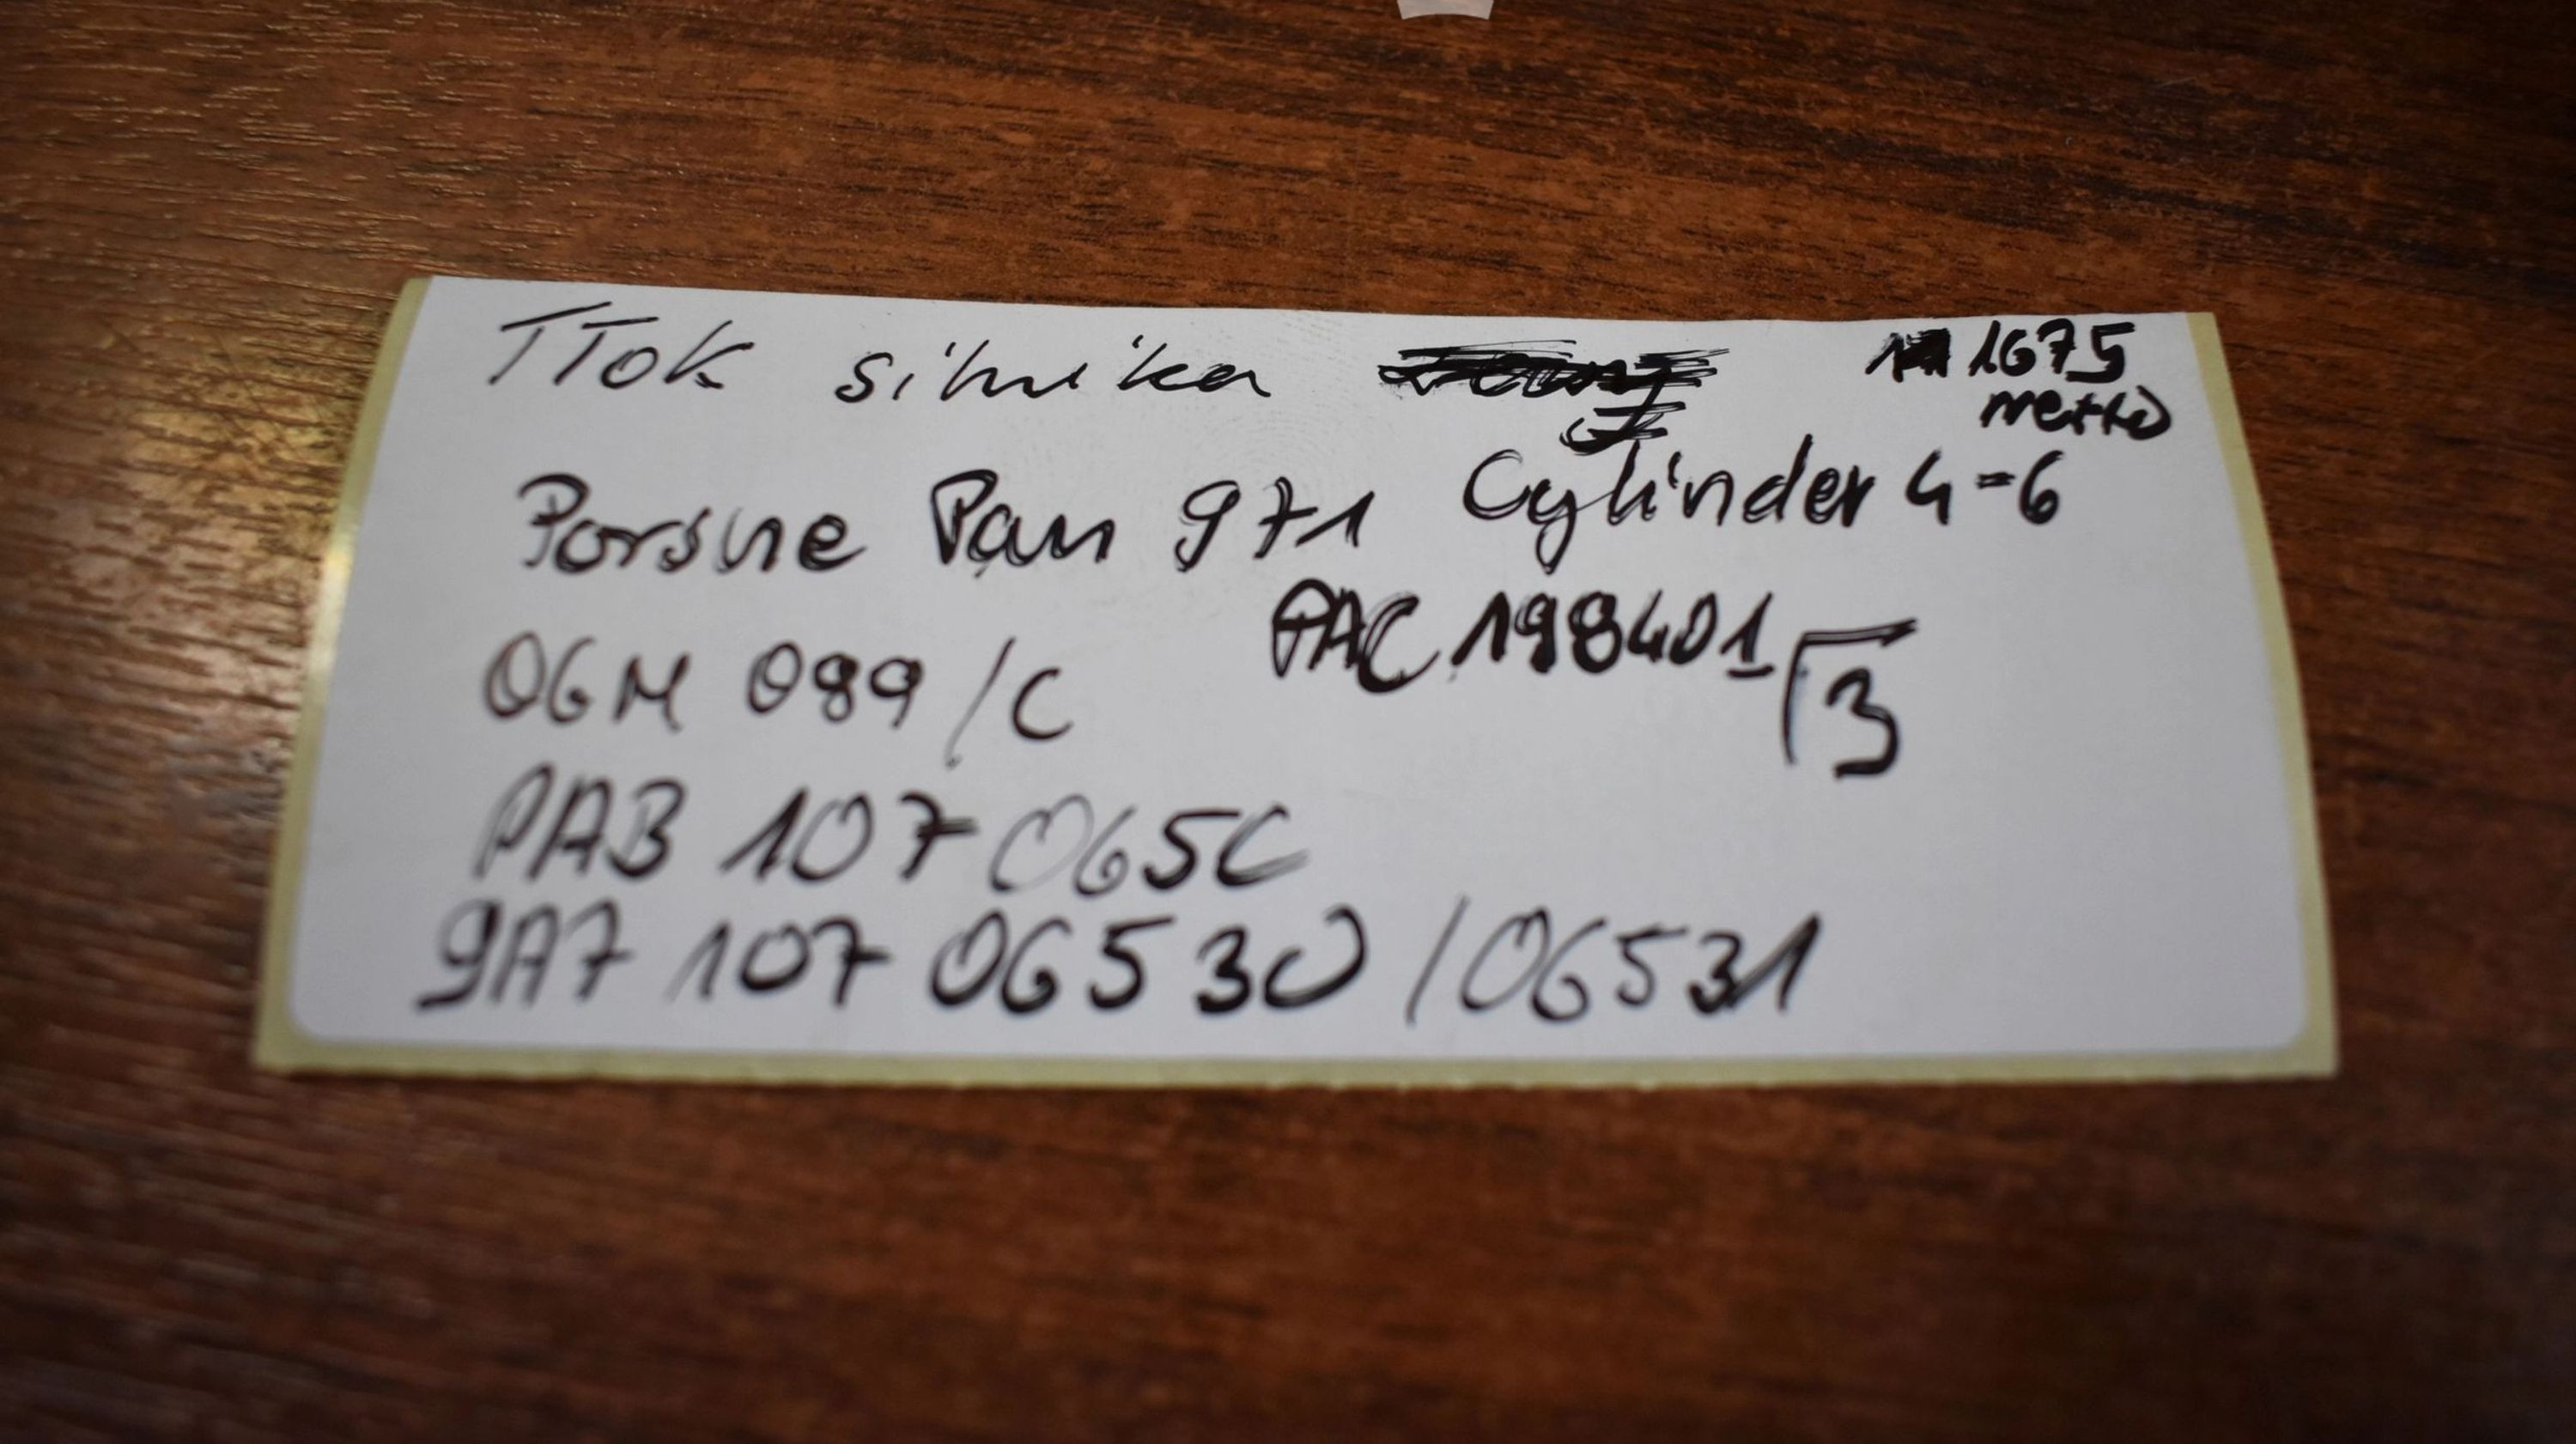 TTok silnika
1675
netto
Porsche Pan 971 Cylinder 4-6
06M 099/C PAC 198401
3
PAB 107 065C
9A7 107 06530/06531